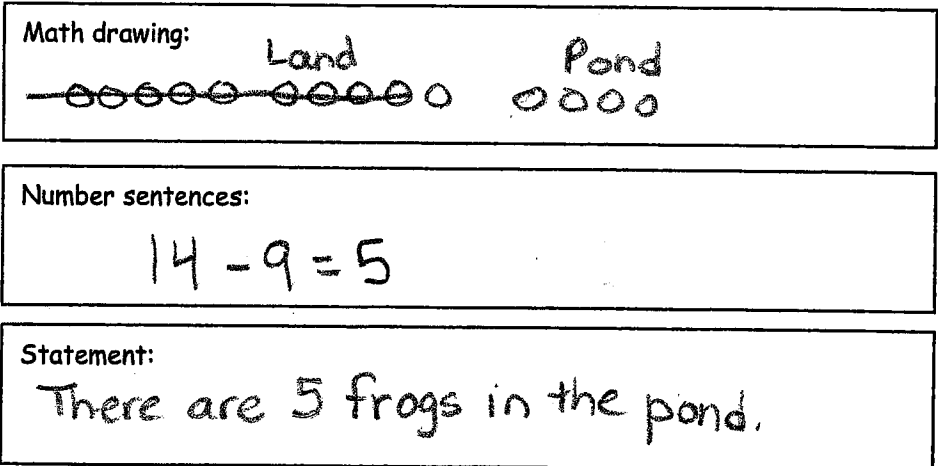 Math drawing:
Land Pond
Number sentences:
14 - 9 = 5
Statement:
There are 5 frogs in the pond.